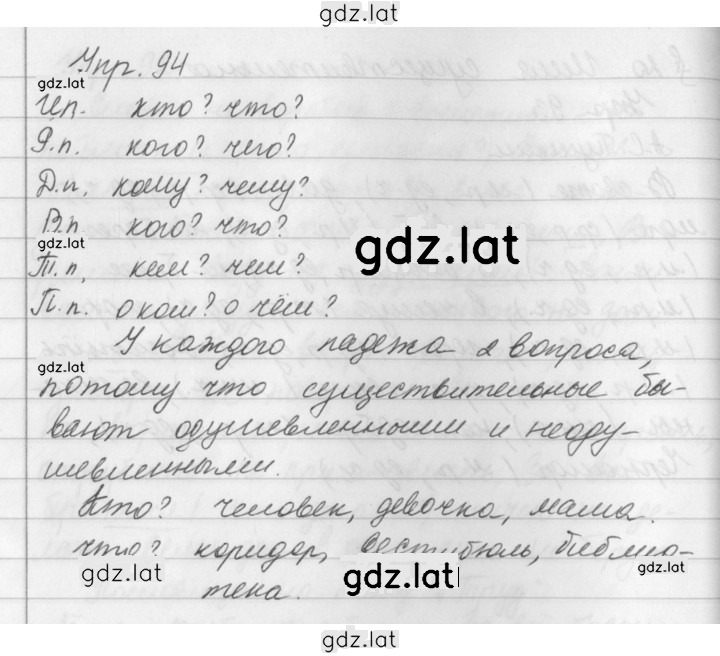 gdz.lat
Упр. 94
gdz.lat
И.п. кто? что?
Р.п. кого? чего?
Д.п. кому? чему?
В.п. кого? что?
gdz.lat
gdz.lat
Т.п. кем? чем?
П.п. о ком? о чём?
У каждого падежа 2 вопроса,
gdz.lat
потому что существительные бы-
вают одушевленными и неоду-
шевленными.
Кто? человек, девочка, мама.
что? коридор, вестибюль, библио-
gdz.lat gdz.lat gdz.lat
тека.
gdz.lat